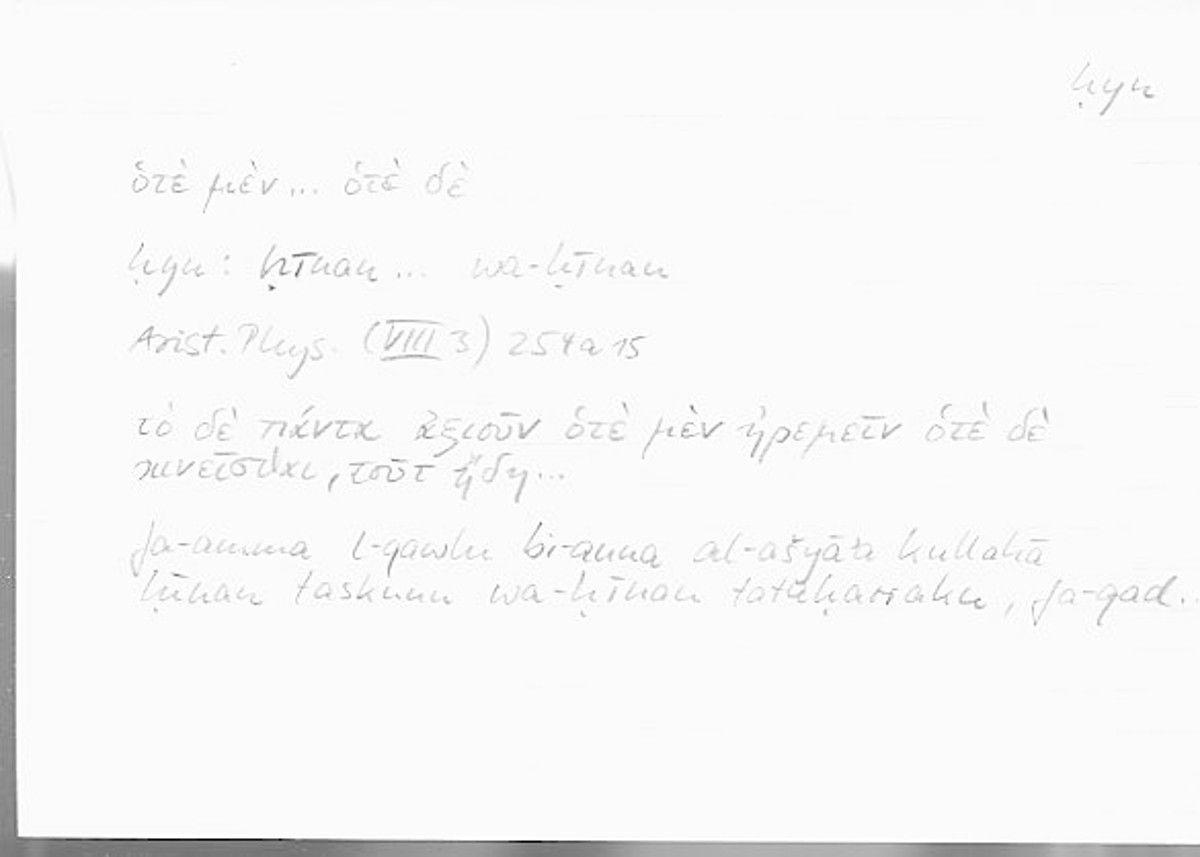 ḥyn
ὁτὲ μὲν... ὁτὲ δὲ
ḥyn: ḥīnan... wa-ḥīnan
Arist. Phys. (VIII 3) 254a15
τὸ δὲ πάντα ἀξιοῦν ὁτὲ μὲν ἠρεμεῖν ὁτὲ δὲ
κινεῖσθαι, τοῦτ' ἤδη...
fa-amma l-qawlu bi-anna al-ašyāʾa kullahā
ḥīnan taskunu wa-ḥīnan tataḥarraku, fa-qad..